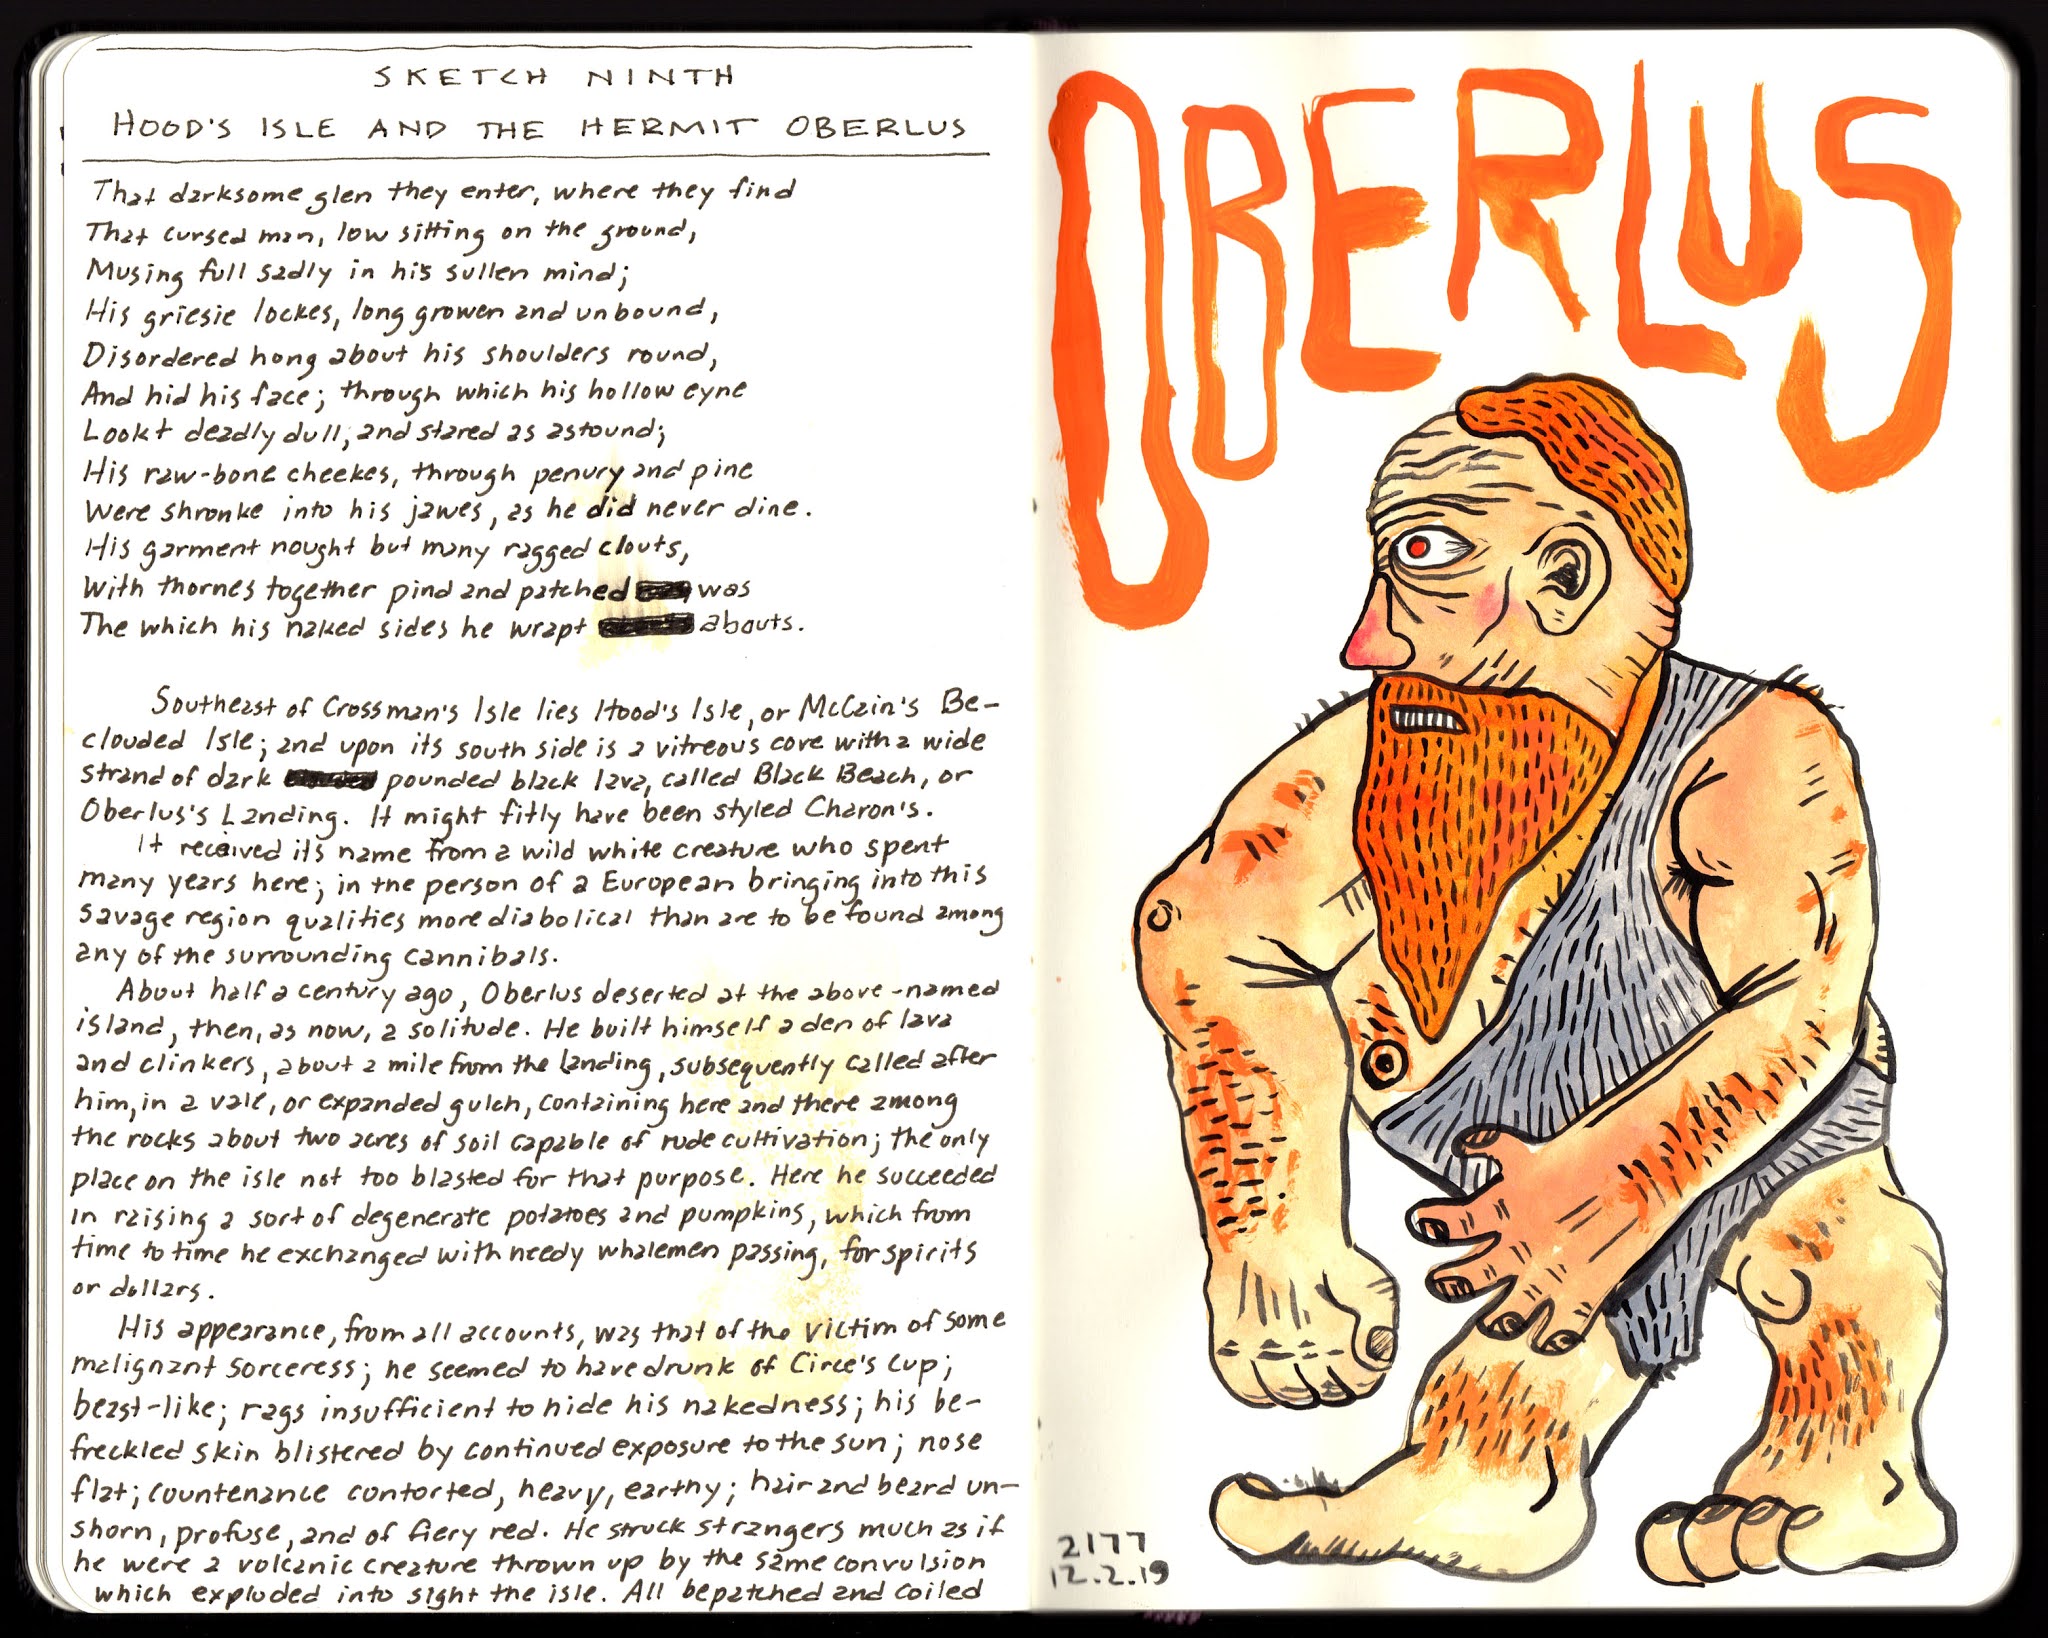 SKETCH NINTH
HOOD'S ISLE AND THE HERMIT OBERLUS
That darksome glen they enter, where they find
That cursed man, low sitting on the ground,
Musing full sadly in his sullen mind;
His griesie lockes, long growen and unbound,
Disordered hong about his shoulders round,
And hid his face; through which his hollow eyne
Lookt deadly dull, and stared as astound;
His raw-bone cheekes, through penury and pine
Were shronke into his jawes, as he did never dine.
His garment nought but many ragged clouts,
With thornes together pind and patched was
The which his naked sides he wrapt abouts.
Southeast of Crossman's Isle lies Hood's Isle, or McCain's Be-
clouded Isle; and upon its south side is a vitreous cove with a wide
strand of dark pounded black lava, called Black Beach, or
Oberlus's Landing. It might fitly have been styled Charon's.
It received its name from a wild white creature who spent
many years here; in the person of a European bringing into this
savage region qualities more diabolical than are to be found among
any of the surrounding cannibals.
About half a century ago, Oberlus deserted at the above-named
island, then, as now, a solitude. He built himself a den of lava
and clinkers, about a mile from the landing, subsequently called after
him, in a vale, or expanded gulch, containing here and there among
the rocks about two acres of soil capable of rude cultivation; the only
place on the isle not too blasted for that purpose. Here he succeeded
in raising a sort of degenerate potatoes and pumpkins, which from
time to time he exchanged with needy whalemen passing, for spirits
or dollars.
His appearance, from all accounts, was that of the victim of some
malignant sorceress; he seemed to have drunk of Circe's cup;
beast-like; rags insufficient to hide his nakedness; his be-
freckled skin blistered by continued exposure to the sun; nose
flat; countenance contorted, heavy, earthy; hair and beard un-
shorn, profuse, and of fiery red. He struck strangers much as if
he were a volcanic creature thrown up by the same convulsion
which exploded into sight the isle. All bepatched and coiled
OBERLUS
2177
12.2.19